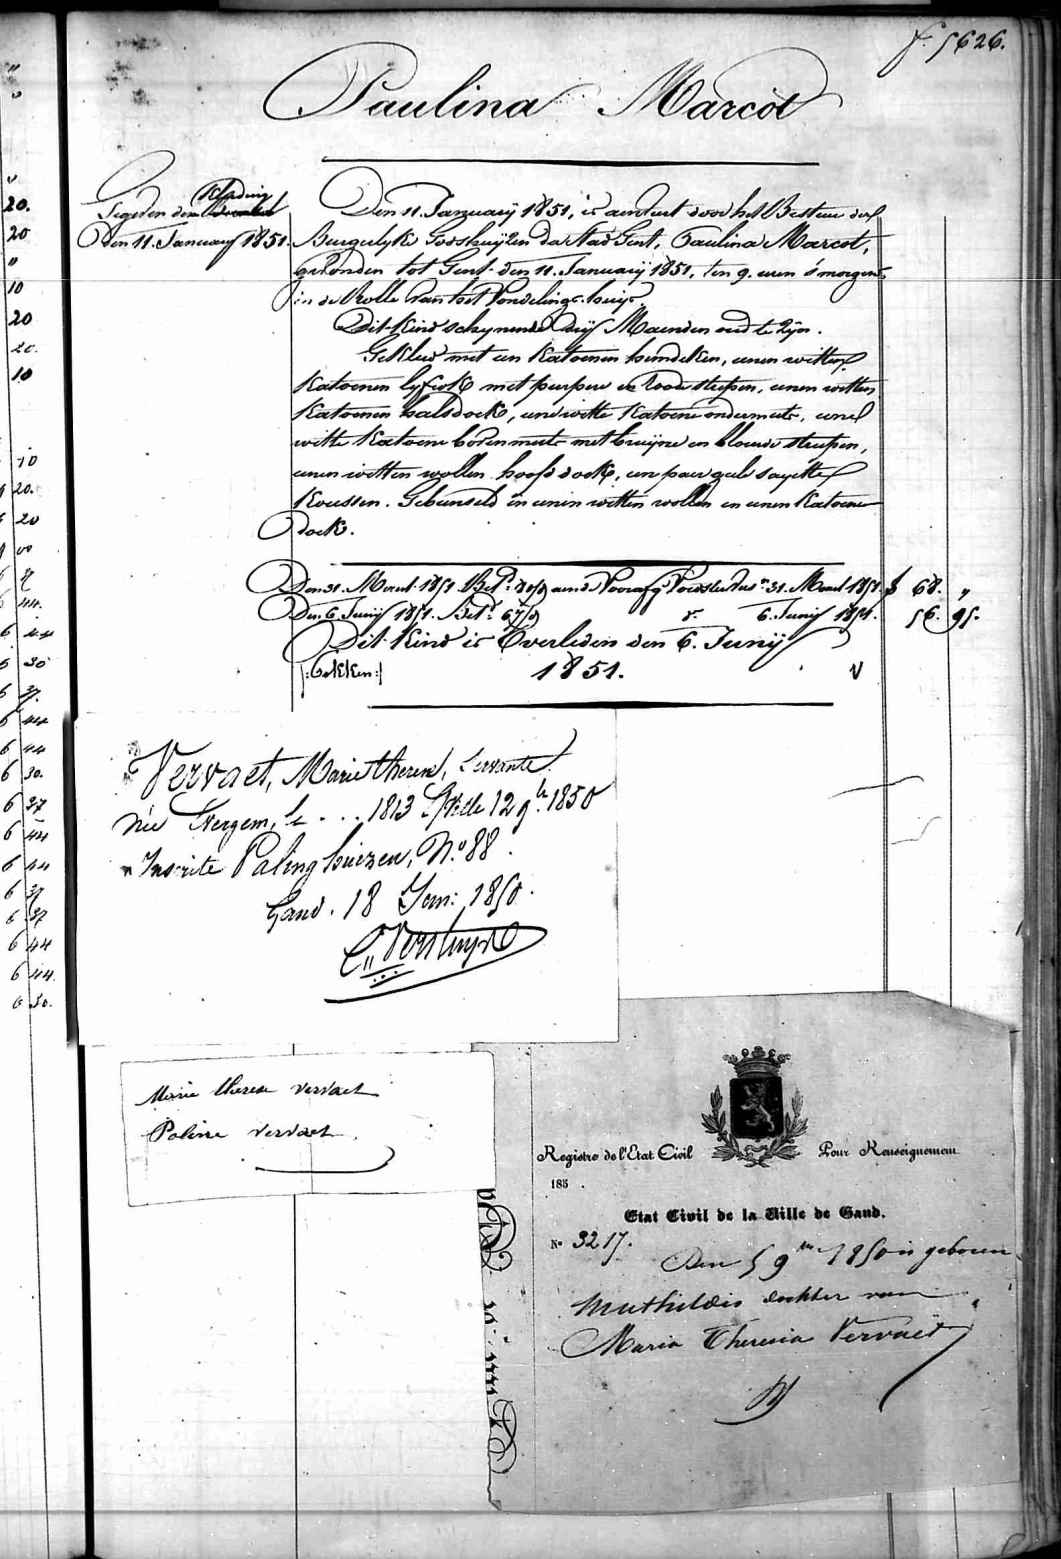 f. 5626.
Paulina Marcot
Gegeven den Kleeding
Den 11. January 1851.
Den 11. January 1851, is aenveert door het Bestuer der
Burgerlyke Godshuyzen der Stad Gent, Paulina Marcot,
gevonden tot Gent den 11. January 1851, ten 9. uren 's morgens
in de Rolle van het Vondelingshuis.
Dit kind schynende dry Maenden oud te zyn.
Gekleed met een katoenen hemdeken, eenen witten
katoenen lyfrok met purpere en roode streepen, eenen witten
katoenen halsdoek, eene witte katoene ondermuts, eene
witte katoene bovenmuts met bruyne en blauwe streepen,
eenen witten wollen hoofddoek, een paer geele sayette
koussen. Gebunseld in eenen witten wollen en eenen katoenen
doek.
Den 31. Maert 1851 Bet. aen 31. Maert 1851. f 68. "
Den 6. Junij 1851. Bet. 67/9 d. 6. Junij 1851. 56. 95.
Dit kind is Overleden den 6. Junij
1851.
Vervaet, Marie Therese, Servante.
née Evergem, le . . . 1813 12 9bre 1850
Inscrite Palinghuizen, N.º 88.
Gand. 18 Jan: 1850.
Marie therese vervaet
Poline vervaet.
Registre de l'Etat Civil Pour Renseignement
185 .
Etat Civil de la Ville de Gand.
Nº 3217.
Den 5 9bre 1850 is geboren
Mathildis dochter van
Maria Theresia Vervaet
20.
20
"
10
20
20.
10
10
20.
20
00
37
44.
6 44
6 30
6 37
6 44
6 44
6 30.
6 37
6 44
6 44
6 37
6 37
6 44
6 44.
6 30.